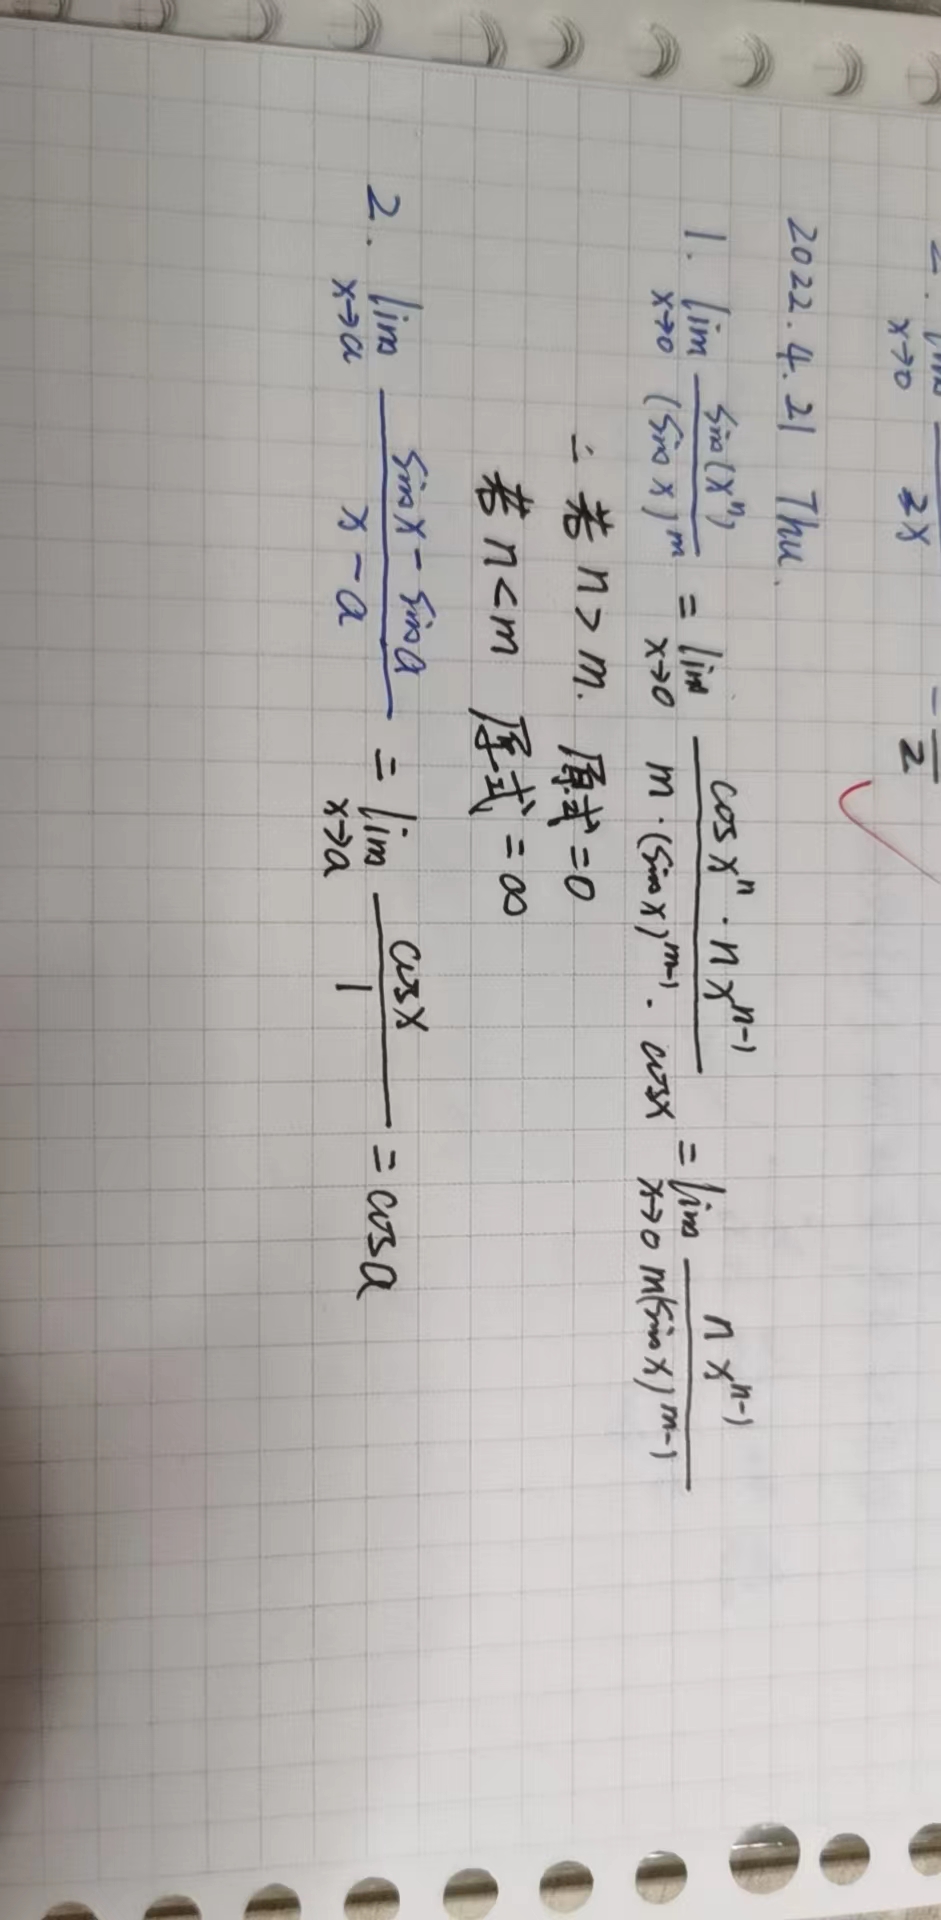 2. lim x→0 2x - 1/2
2022.4.21 Thu.
1. lim x→0 sin(xⁿ)/(sin x)ᵐ = lim x→0 cos xⁿ · n xⁿ⁻¹/m·(sin x)ᵐ⁻¹ · cos x = lim x→0 n xⁿ⁻¹/m(sin x)ᵐ⁻¹
∴ 若 n > m. 原式 = 0
若 n < m 原式 = ∞
2. lim x→a sin x - sin a/x - a = lim x→a cos x/1 = cos a